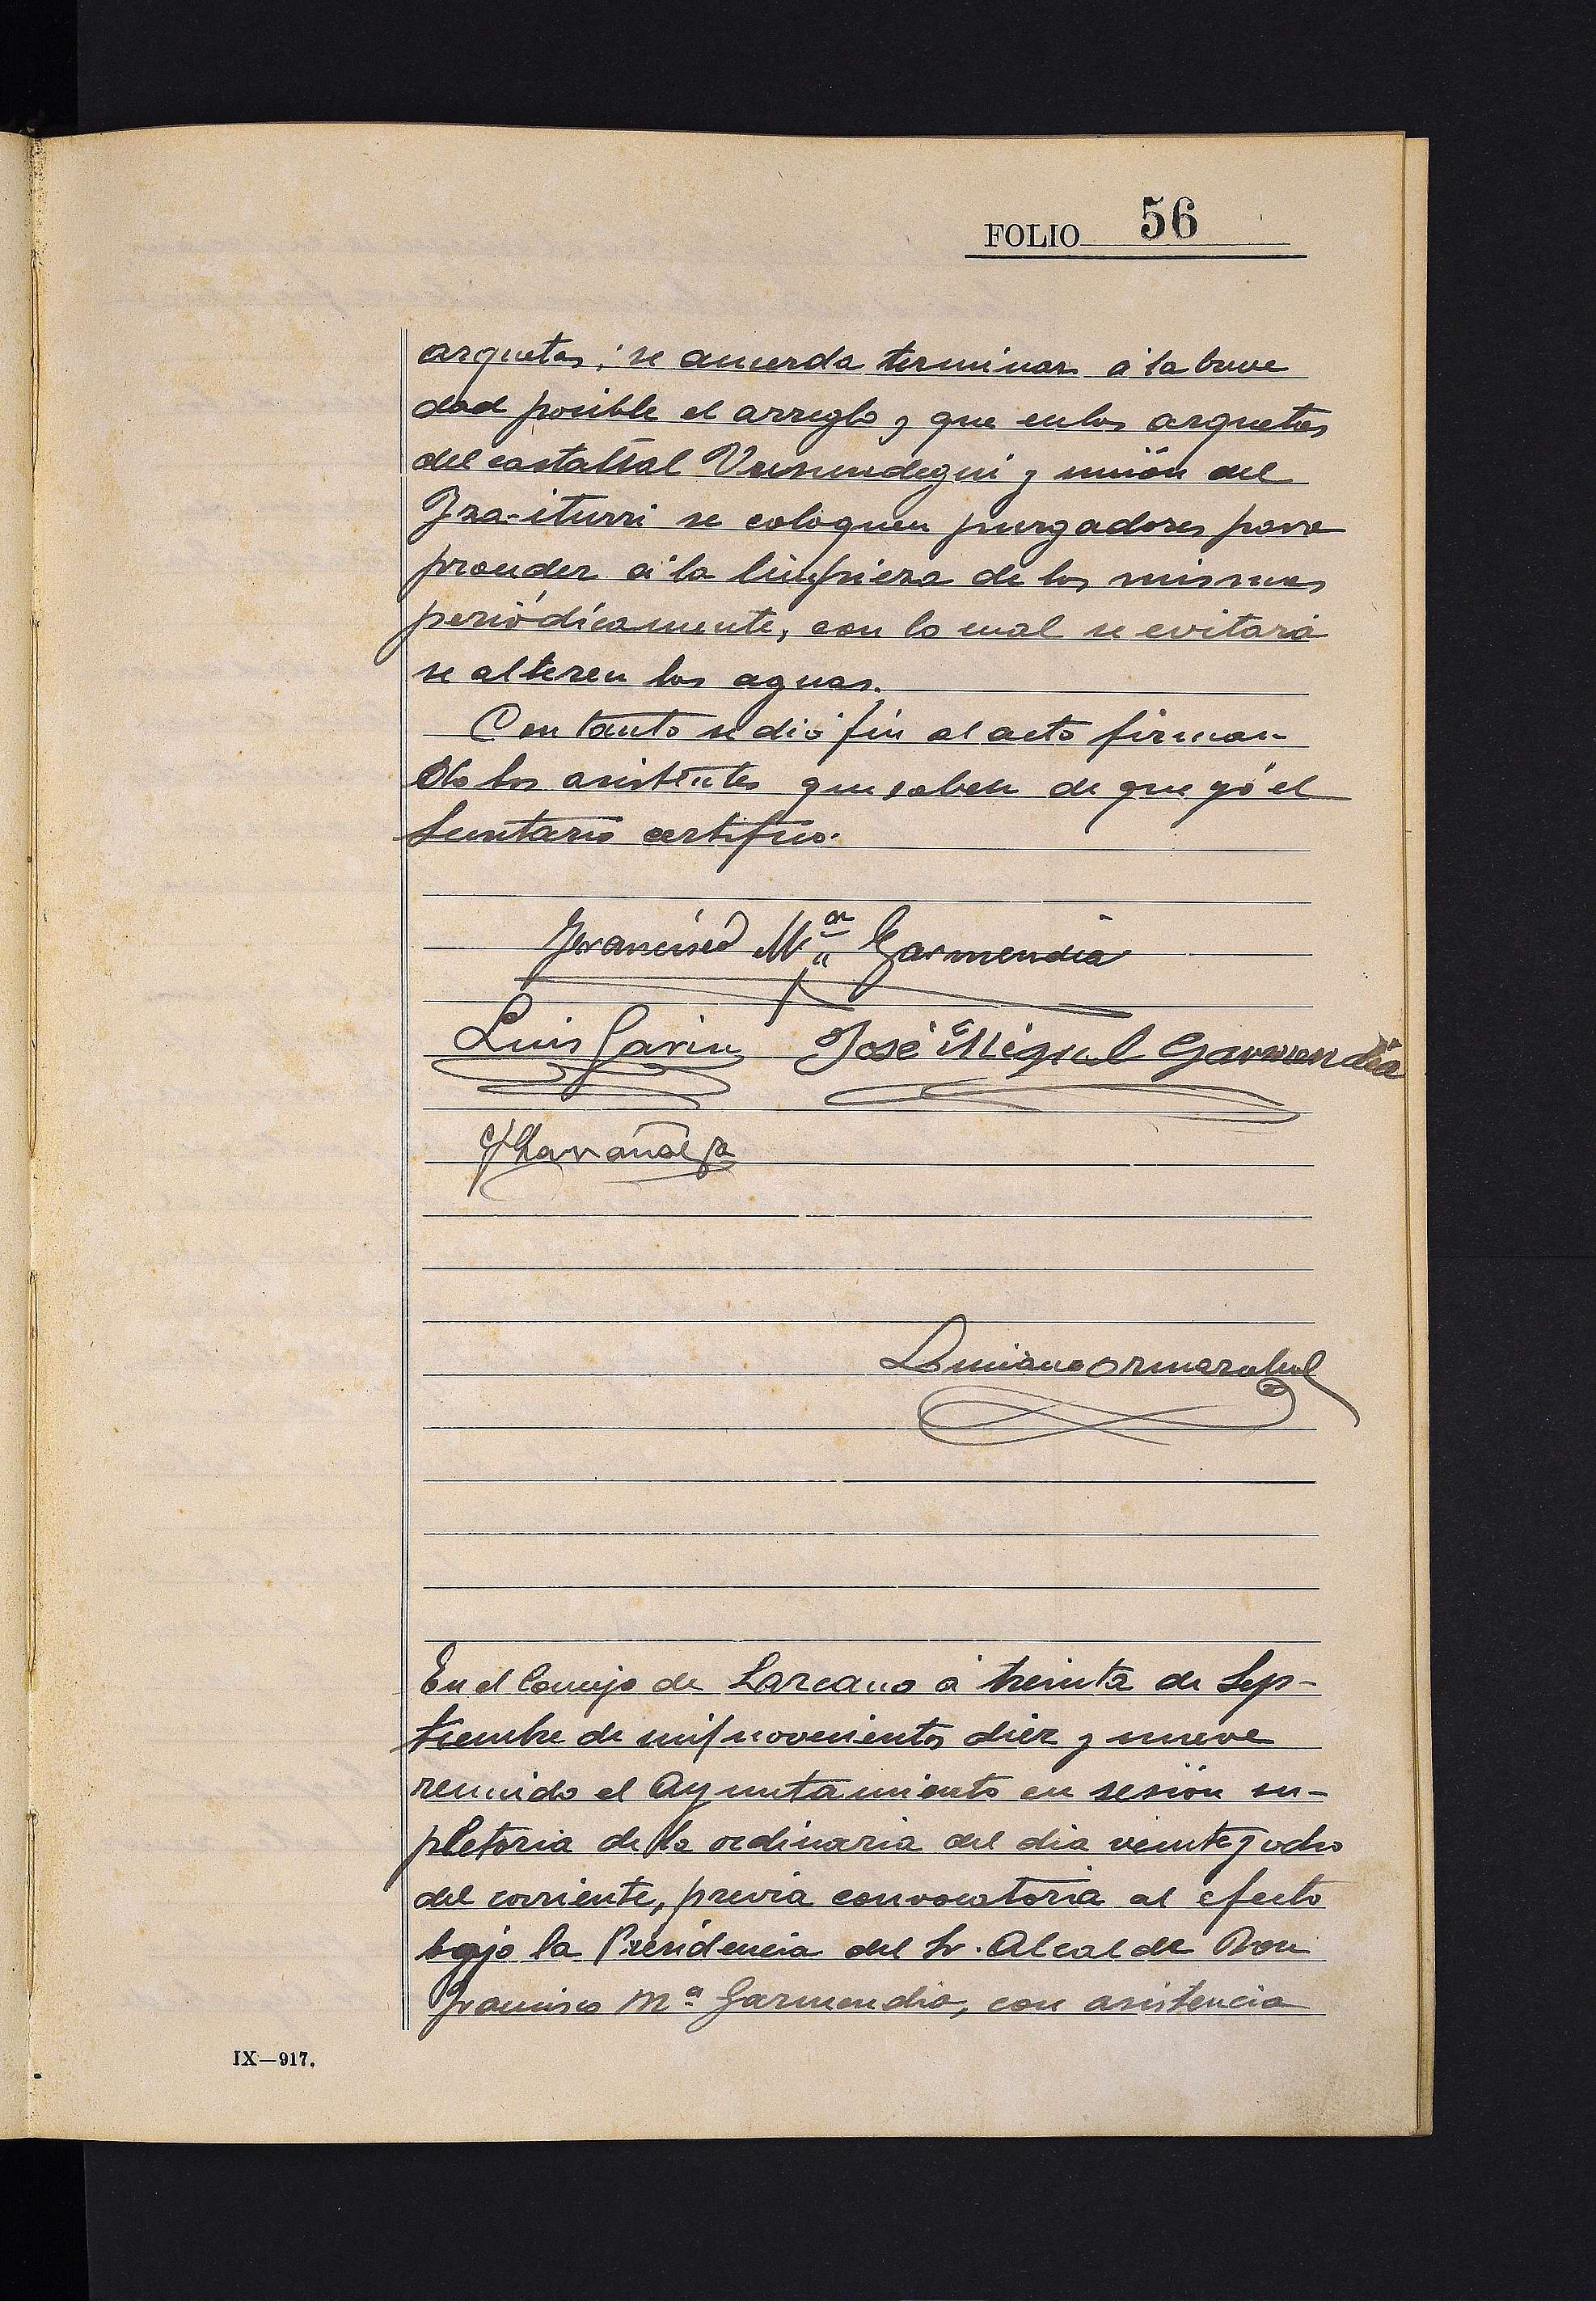 FOLIO 56
arquetas; se acuerda terminar á la breve
dad posible el arreglo y que en las arquetas
del castañal y unión del
Iza-iturri se coloquen purgadores para
proceder á la limpieza de los mismos
periódicamente, con lo cual se evitará
se alteren las aguas.
Con tanto se dió fin al acto firman-
do los asistentes que saben de que yó el
Secretario certifico.
Francisco Mª Garmendia
Luis Garin José Miguel Garmendia
Luciano Ormazabal
En el Concejo de Lazcano á treinta de Sep-
tiembre de mil novecientos diez y nueve
reunido el Ayuntamiento en sesión su-
pletoria de la ordinaria del dia veinte y ocho
del corriente, previa convocatoria al efecto
bajo la Presidencia del Sr. Alcalde Don
Francisco Mª Garmendia, con asistencia
IX—917.